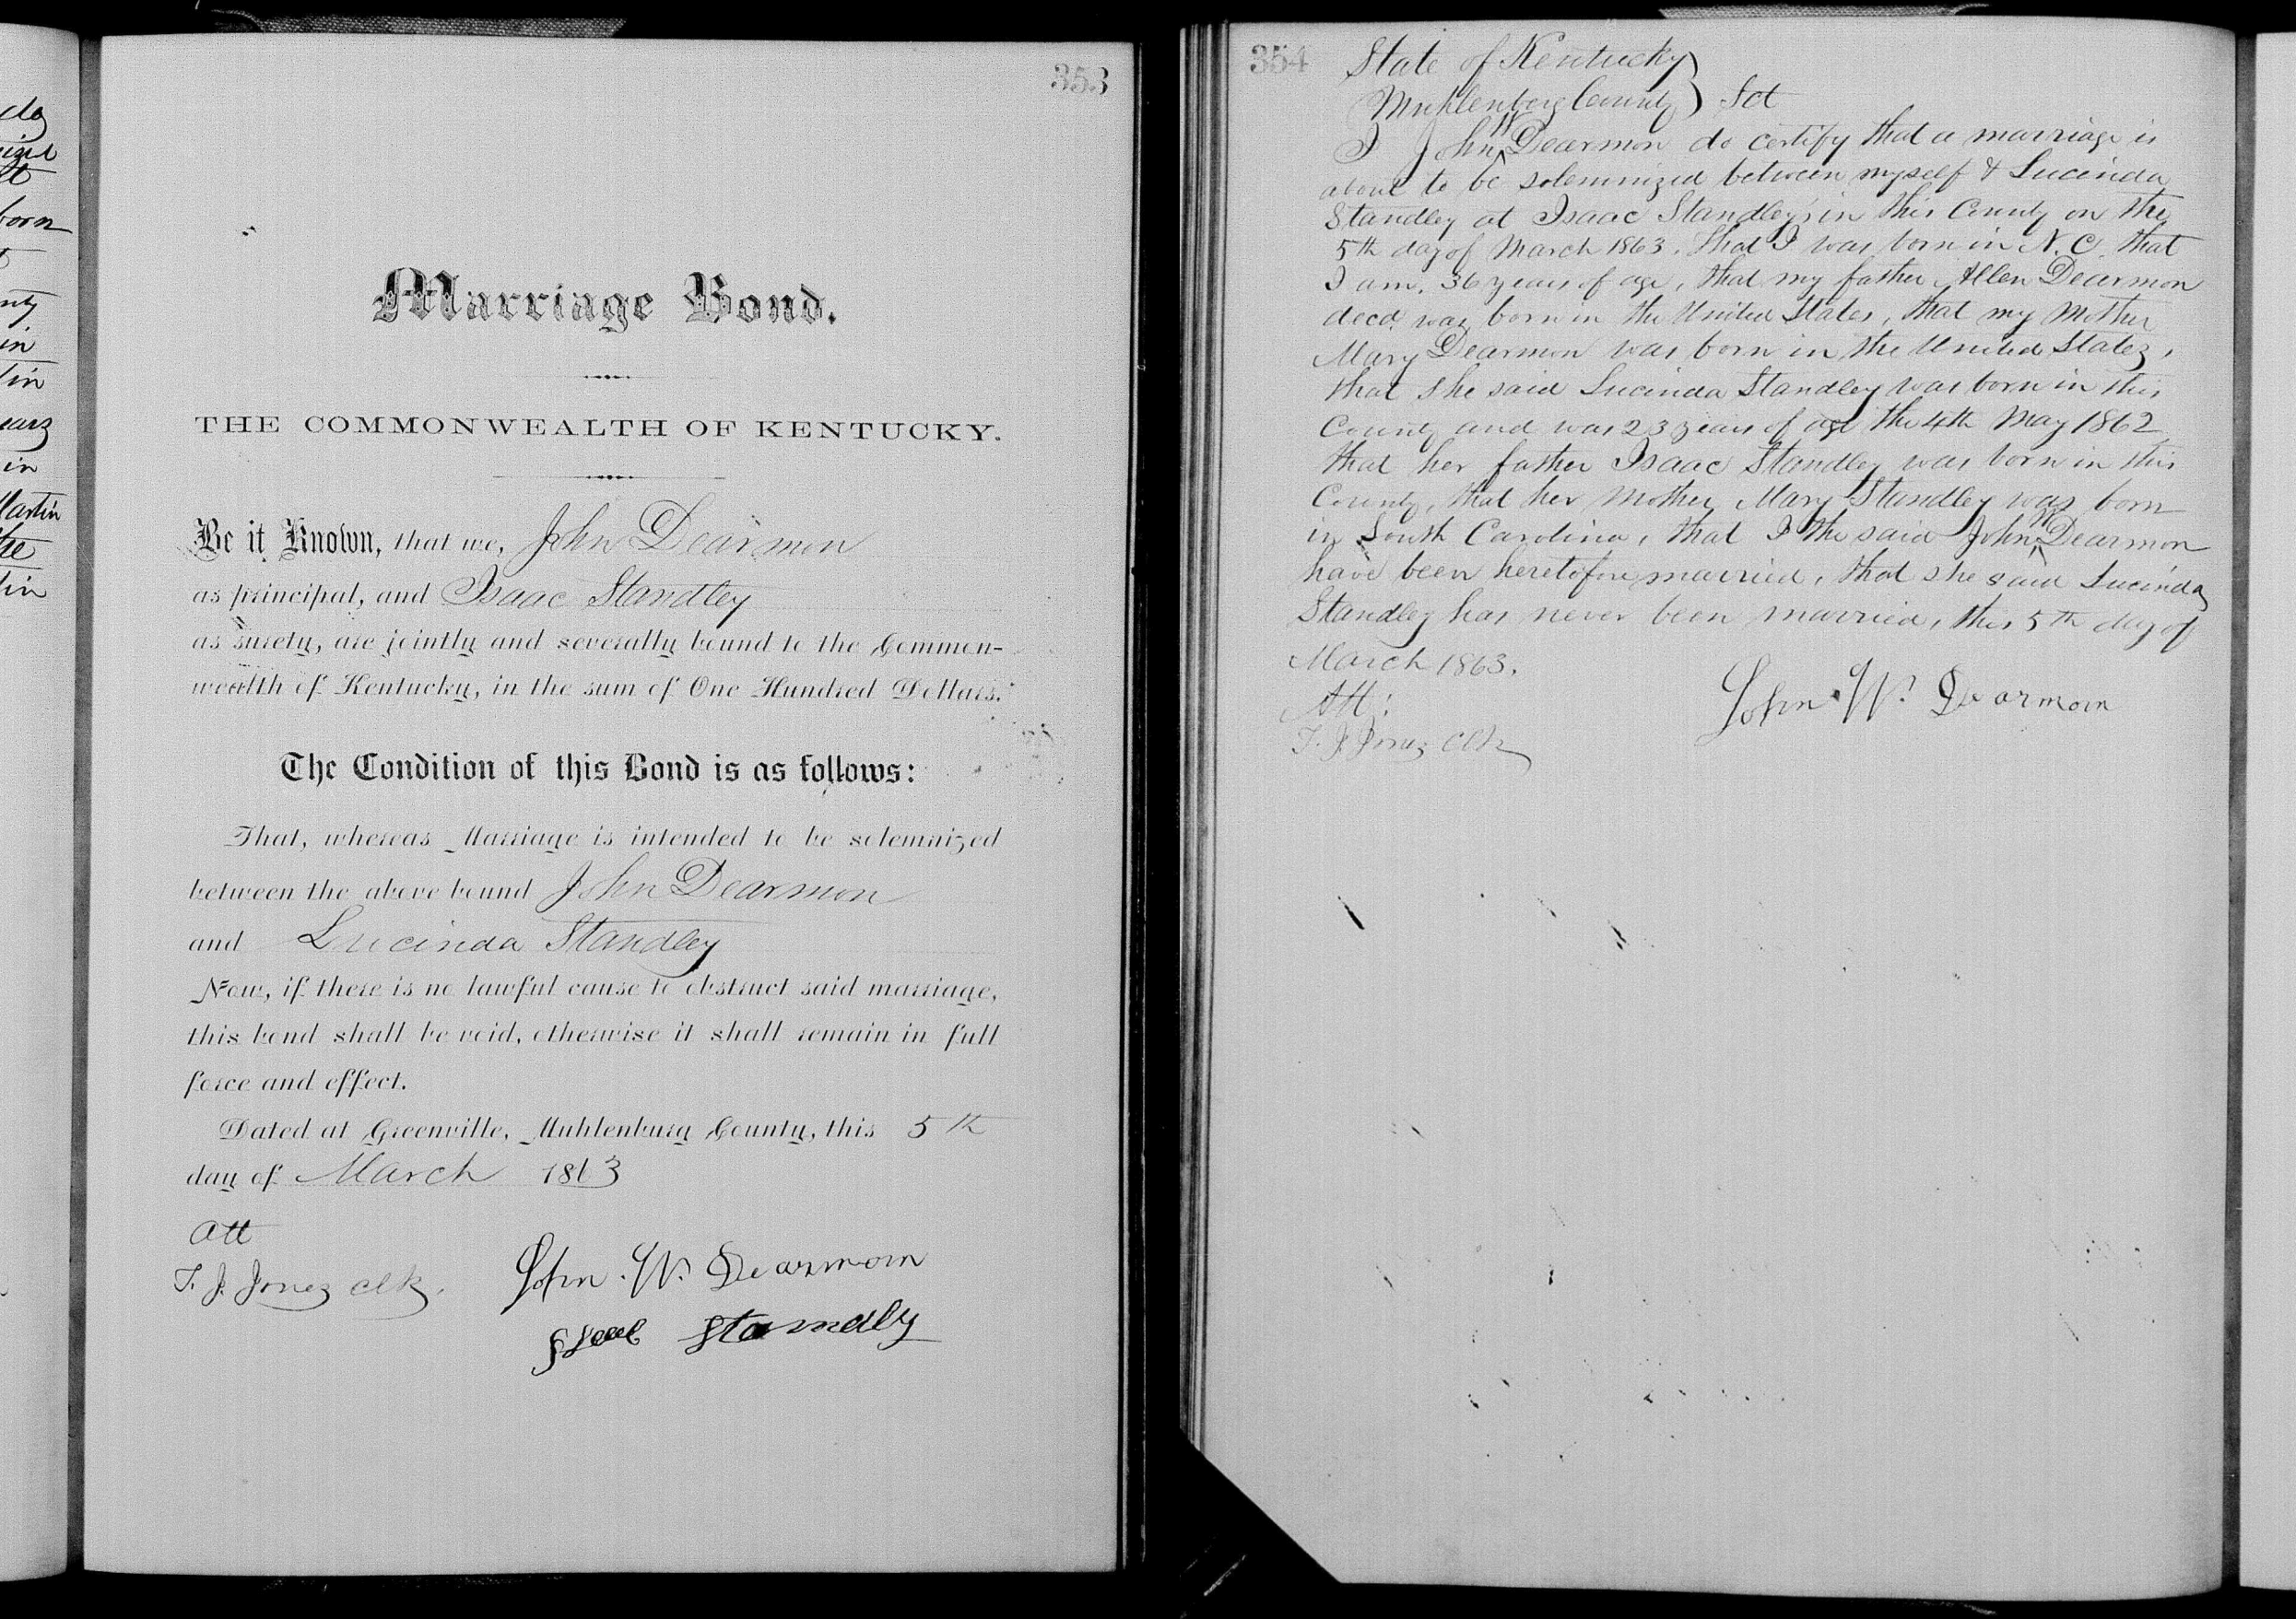 do
born
in
tin
in
Martin
the
tin
353
Marriage Bond.
THE COMMONWEALTH OF KENTUCKY.
Be it Known, that we, John Dearmon
as principal, and Isaac Standley
as surety, are jointly and severally bound to the Common-
wealth of Kentucky, in the sum of One Hundred Dollars.
The Condition of this Bond is as follows:
That, whereas Marriage is intended to be solemnized
between the above bound John Dearmon
and Lucinda Standley
Now, if there is no lawful cause to obstruct said marriage,
this bond shall be void, otherwise it shall remain in full
force and effect.
Dated at Greenville, Muhlenburg County, this 5th
day of March 1863
Att
T. J. Jones Clk.
John W. Dearmon
Standly
354
State of Kentucky
Muhlenberg County Sct
I John W Dearmon do certify that a marriage is
about to be solemnized between myself & Lucinda
Standley at Isaac Standley's in this County on the
5th day of March 1863. that I was born in N. C. that
I am 36 years of age, that my father Allen Dearmon
decd. was born in the United States, that my Mother
Mary Dearmon was born in the United States,
that she said Lucinda Standley was born in this
County and was 23 years of age the 4th May 1862
that her father Isaac Standley was born in this
County, that her Mother Mary Standley was born
in South Carolina, that I the said John W Dearmon
have been heretofore married, that she said Lucinda
Standley has never been married, this 5th day of
March 1863.
Att:
T. J. Jones Clk
John W. Dearmon